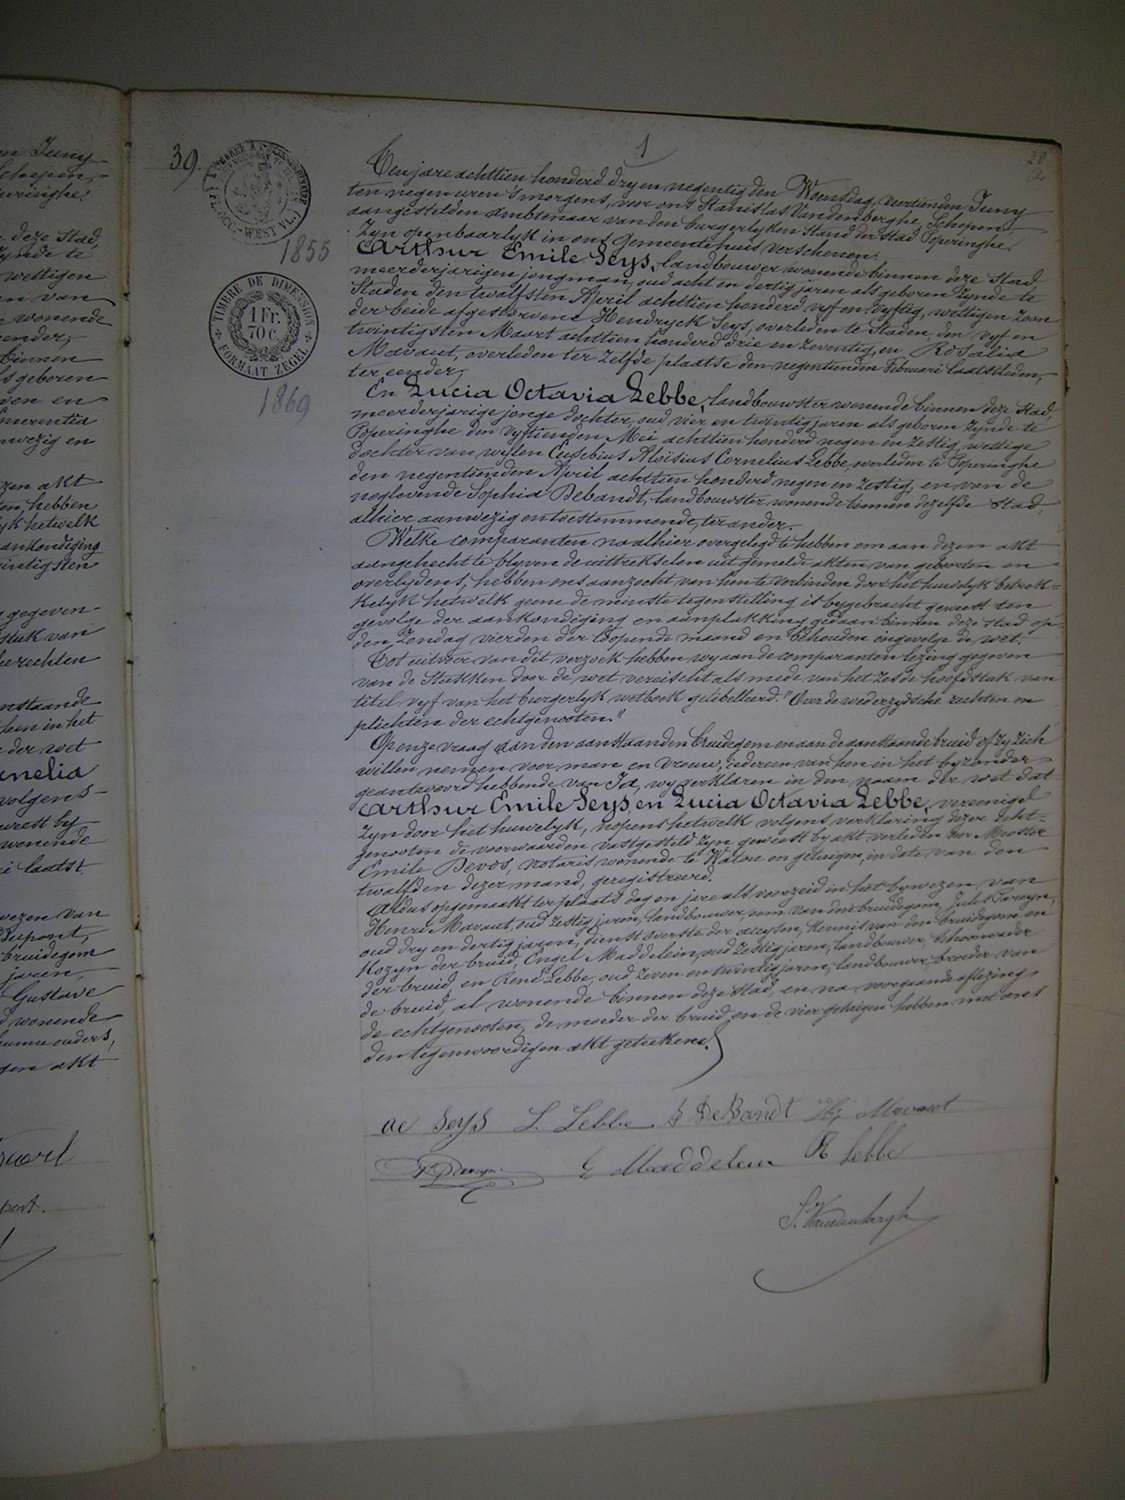 en Juny
Schepen,
peringhe.
deze Stad,
zynde te
wettigen
en van
wonende
eender,
binnen
als geboren
en
nwezig en
akt
hebben
yk hetwelk
ankondiging
gegeven
stuk van
rechten
staande
hen in het
der wet
nelia
volgens
weest by
wonende
laatst
wezen van
Dupont,
bruidegom
jaren,
Gustave
wonende
ouders,
akt
39.
1
TIMBRE DE DIMENSION
1 Fr.
70 c.
FORMAAT ZEGEL
1855
1869
Ten jare achttien honderd dry en negentig den Woensdag, veertienden Juny
ten negen uren 's morgens, voor ons Stanislas Vandenberghe, Schepen
aangestelden ambtenaar van den burgerlyken stand der stad Poperinghe,
Zyn openbaarlyk in ons gemeentehuis verschenen:
Arthur Emile Seys, landbouwer wonende binnen deze Stad
meerderjarigen jongman, oud acht en dertig jaren als geboren zynde te
Staden den twalfsten April achttien honderd vyf en vyftig, wettigen zoon
der beide afgestorvene Hendryck Seys, overleden te Staden, den vyf en
twintigsten Maart achttien honderd drie en zeventig, en Rosalia
Mavaut, overleden ter zelfde plaatse den negentienden Februari laatstleden,
ter eender,
En Lucia Octavia Lebbe, landbouwster wonende binnen deze Stad
meerderjarige jonge dochter, oud vier en twintig jaren als geboren zynde te
Poperinghe den vyftienden Mei achttien honderd negen en zestig, wettige
dochter van wylen Eusebius Aloisius Cornelius Lebbe, overleden te Poperinghe
den negentienden April achttien honderd negen en zestig, en van de
noglevende Sophia Debandt, landbouwster wonende binnen dezelfde Stad,
alhier aanwezig en toestemmende, ter ander.
Welke comparanten na alhier overgelegd te hebben om aan dezen akt
aangehecht te blyven de uittrekselen uit gemelde akten van geboorten en
overlydens, hebben ons aanzocht van hen te verbinden door het huwelyk betrek=
kelyk hetwelk geene de minste tegenstelling is bygebracht geweest ten
gevolge der aankondiging en aanplakking gedaan binnen deze stad op
den Zondag vierden der loopende maand en behouden ingevolge de wet.
Tot uitvoer van dit verzoek hebben wy aan de comparanten lezing gegeven
van de Stukken door de wet vereischt als mede van het zesde hoofdstuk van
titel vyf van het burgerlyk wetboek gelibelleerd: "Over de wederzydsche rechten en
plichten der echtgenooten."
Op onze vraag aan den aanstaanden bruidegom en aan de aanstaande bruid of zy zich
willen nemen voor man en vrouw, iedereen van hen in het byzonder
geantwoord hebbende van Ja, wy verklaren in den naam der wet dat
Arthur Emile Seys en Lucia Octavia Lebbe, vereenigd
zyn door het huwelyk, nopens hetwelk volgens verklaring dezer echt=
genooten de voorwaarden vastgesteld zyn geweest by akt verleden voor Meester
Emile Devos, notaris wonende te Watou en getuigen, in date van den
twalfden dezer maand, geregistreerd.
Aldus opgemaakt ter plaats dag en jare als voorzeid in het bywezen van
Henri Mavaut, oud zestig jaren, landbouwer, oom van den bruidegom, Jules
oud dry en dertig jaren, kennis van den bruidegom en
Kozyn der bruid, Engel Maddelein, oud zestig jaren, landbouwer, Schoonvader
der bruid, en René Lebbe, oud zeven en twintig jaren, landbouwer, broeder van
de bruid, al wonende binnen deze stad, en na voorgaande aflezing
de echtgenooten, de moeder der bruid en de vier getuigen hebben met ons
den tegenwoordigen akt geteekend.
Seys L. Lebbe S DeBandt Hy Mavaut
E Maddelein R Lebbe
S. Vandenberghe